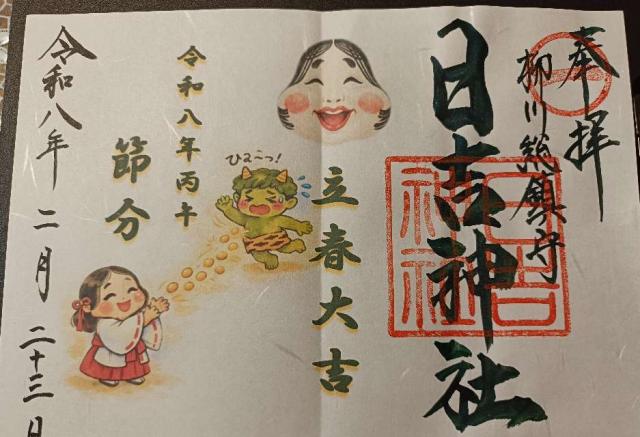 奉拝
柳川総鎮守
日吉神社
日吉
神社
立春大吉
ひえ〜っ!
令和八年丙午
節分
令和八年 二月 二十三日